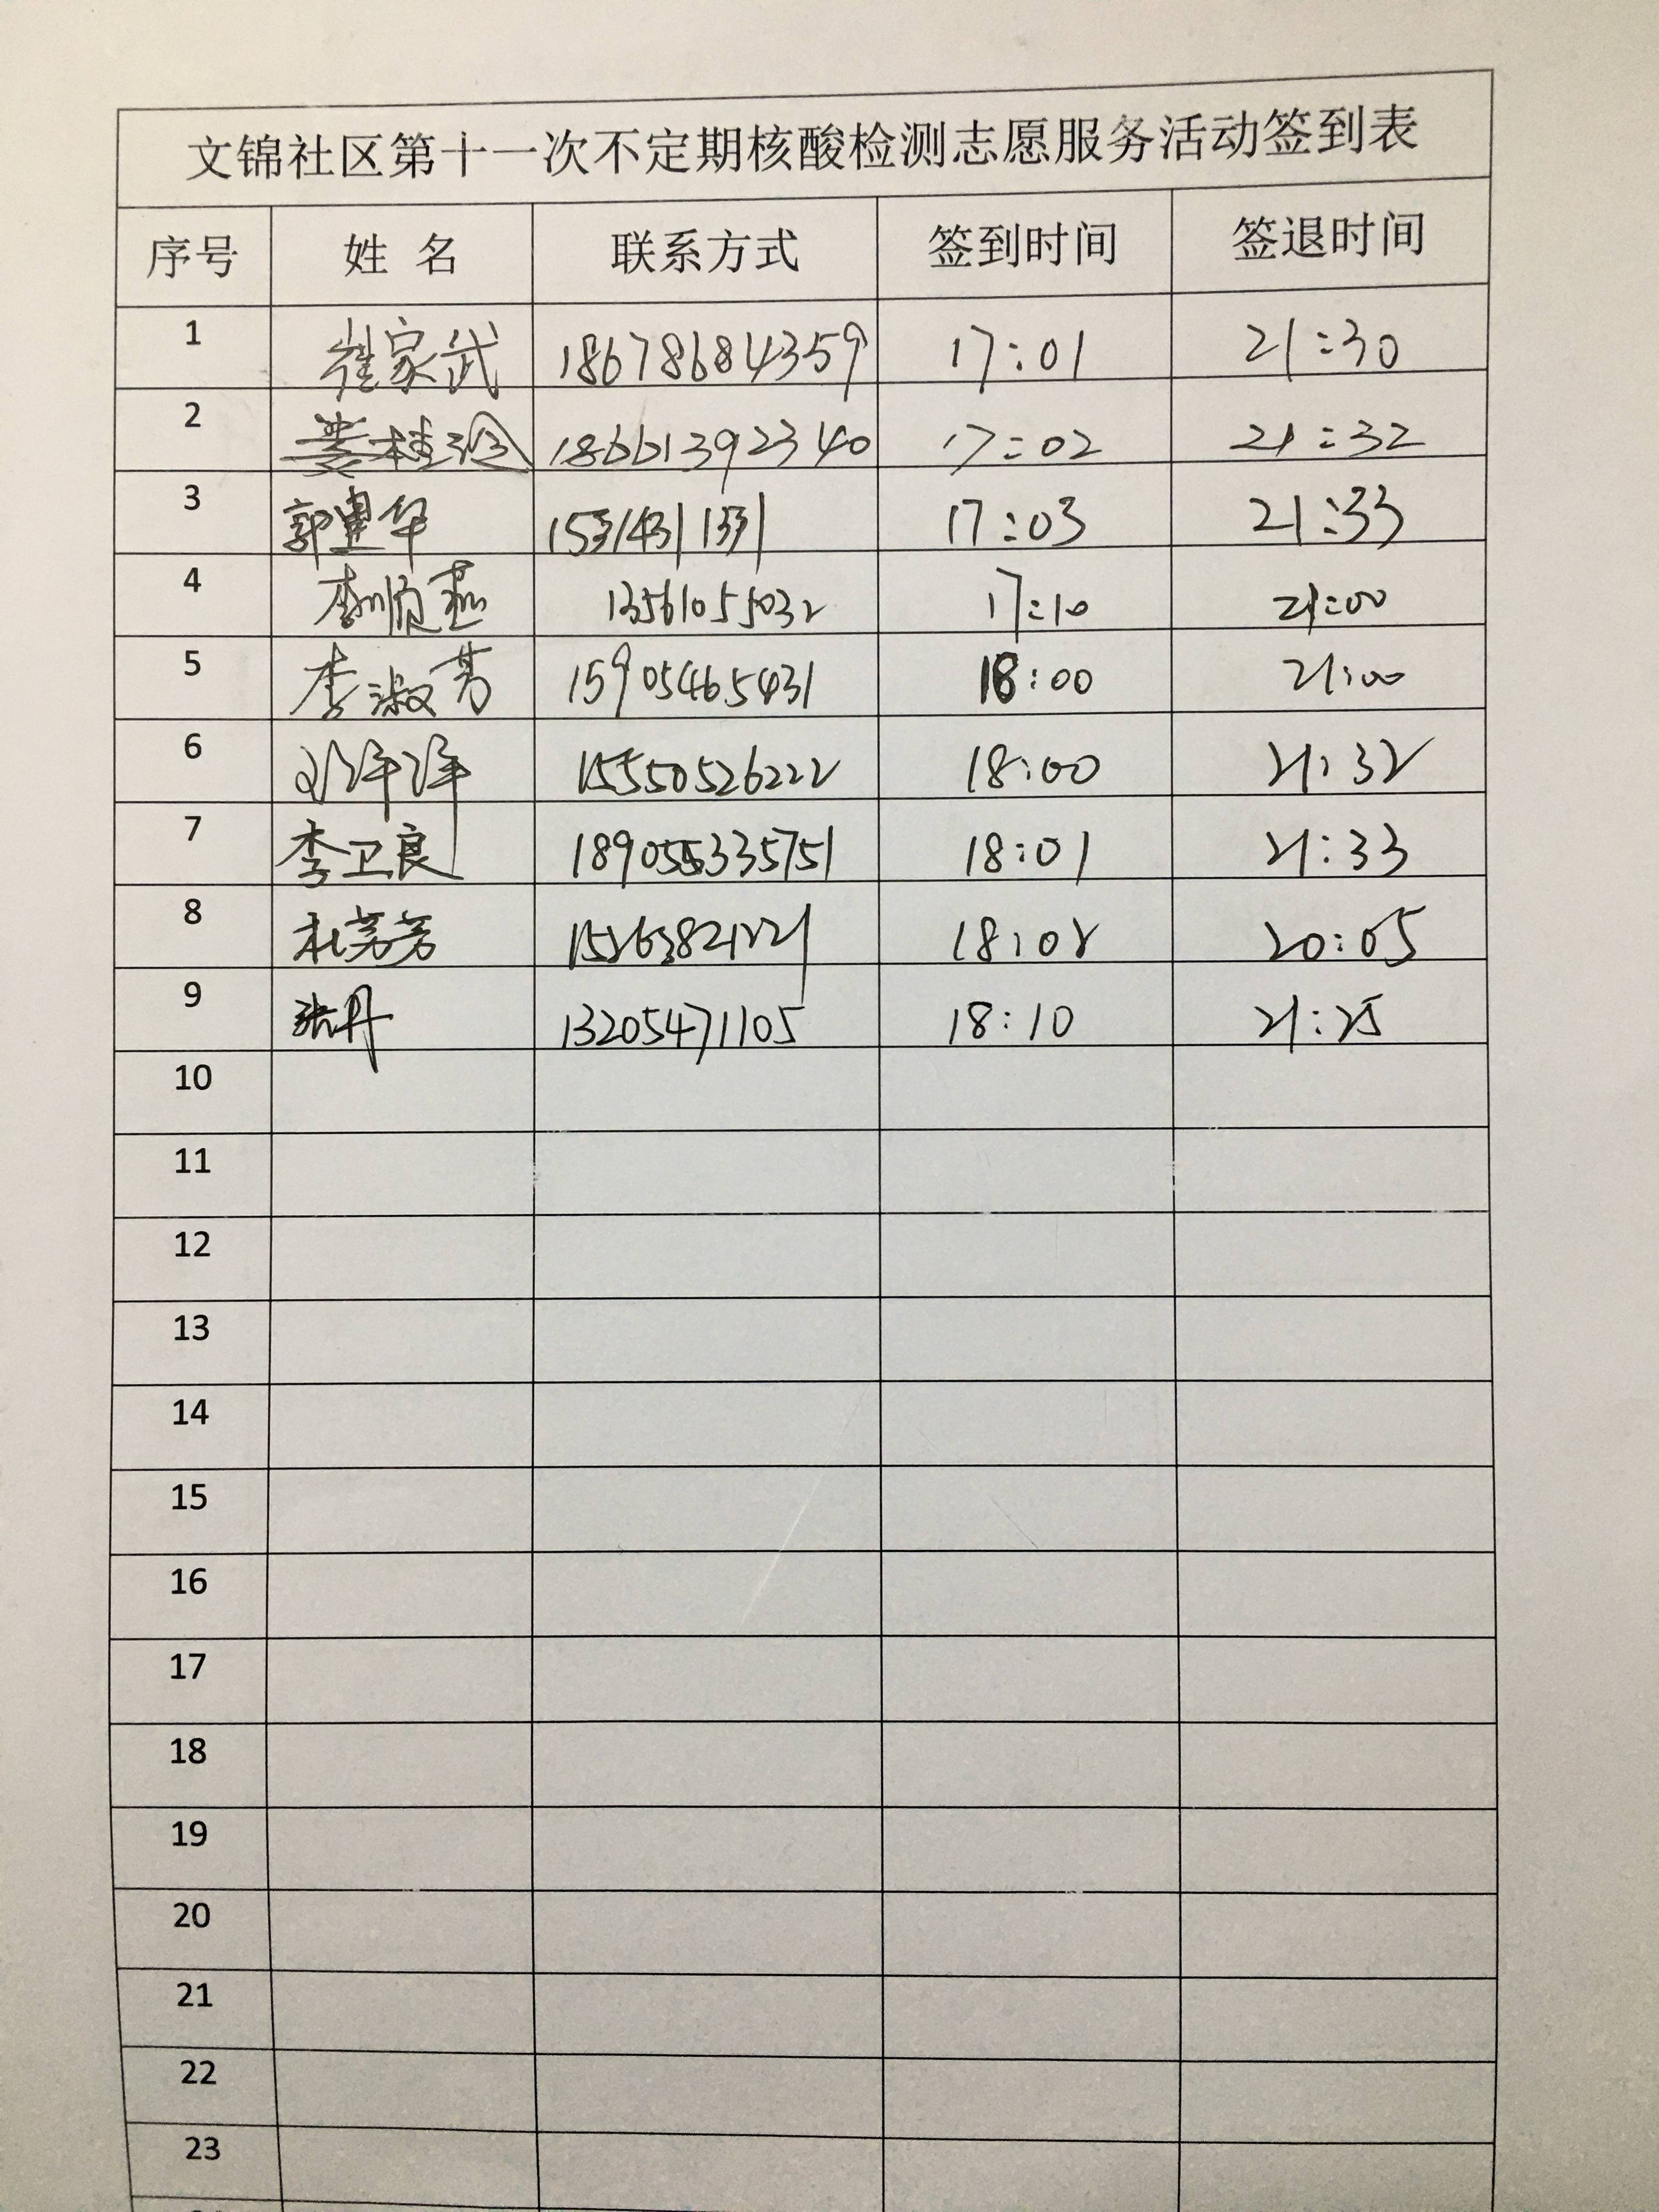 文锦社区第十一次不定期核酸检测志愿服务活动签到表
序号 姓 名 联系方式 签到时间 签退时间
1 崔家武 18678684359 17:01 21:30
2 娄桂玲 18661392340 17:02 21:32
3 郭建华 17:03 21:33
4 李顺燕 13561055032 17:10 21:00
5 李淑芳 15905465431 18:00 21:00
6 刘洋洋 15550526222 18:00 21:32
7 李卫良 18:01 21:33
8 杜芳芳 18:02 20:05
9 张丹 13205471105 18:10 21:25
10
11
12
13
14
15
16
17
18
19
20
21
22
23